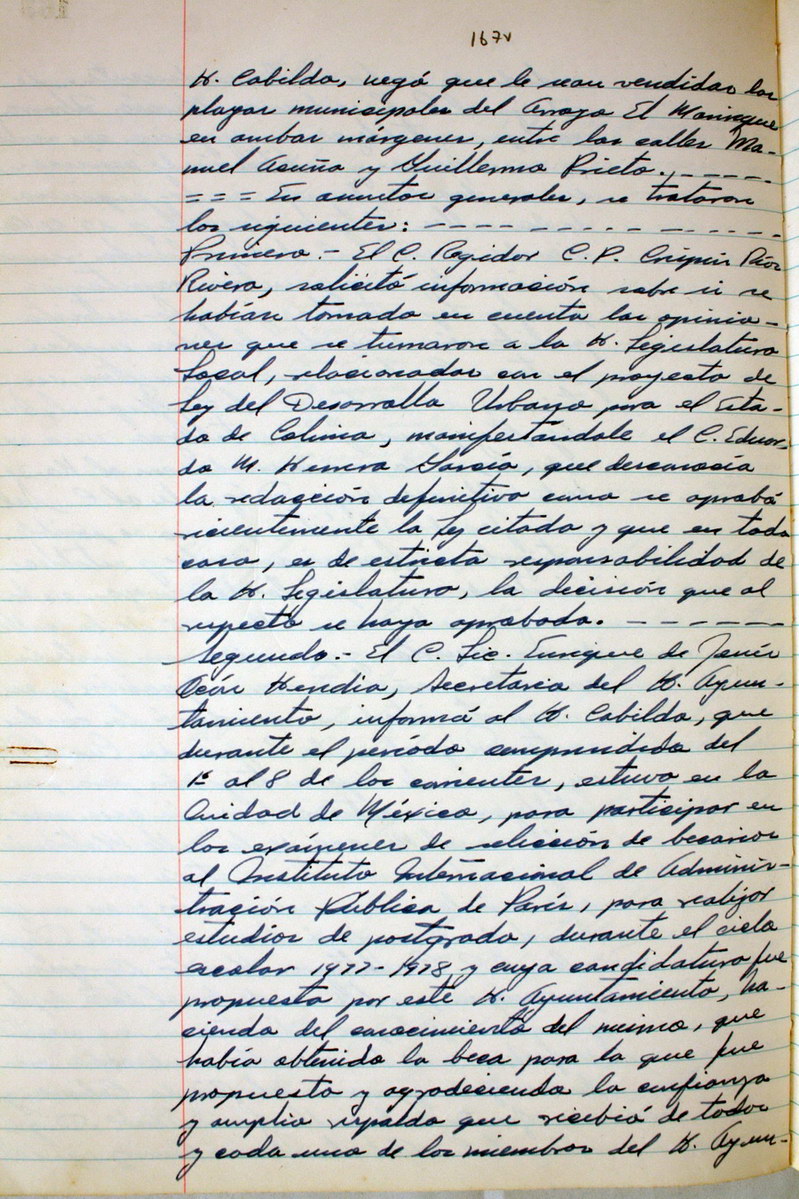 167v
H. Cabildo, negó que le sean vendidas las
playas municipales del Arroyo El Manrique
en ambas márgenes, entre las calles Ma-
nuel Acuña y Guillermo Prieto. - - - - -
= = = En asuntos generales, se trataron
los siguientes: - - - - - - - - - - - - -
Primero.- El C. Regidor C.P. Crispín Ríos
Rivera, solicitó información sobre si se
habían tomado en cuenta las opinio-
nes que se turnaron a la H. Legislatura
Local, relacionadas con el proyecto de
Ley del Desarrollo Urbano para el Esta-
do de Colima, manifestándole el C. Eduar-
do M. Herrera García, que desconocía
la redacción definitiva como se aprobó
recientemente la Ley citada y que en todo
caso, es de estricta responsabilidad de
la H. Legislatura, la decisión que al
respecto se haya aprobado. - - - - - -
Segundo.- El C. Lic. Enrique de Jesús
Ocón Heredia, Secretario del H. Ayun-
tamiento, informó al H. Cabildo, que
durante el período comprendido del
1º al 8 de los corrientes, estuvo en la
Ciudad de México, para participar en
los exámenes de selección de becarios
al Instituto Internacional de Adminis-
tración Pública de París, para realizar
estudios de postgrado, durante el ciclo
escolar 1977-1978, y cuya candidatura fue
propuesta por este H. Ayuntamiento, ha-
ciendo del conocimiento del mismo, que
había obtenido la beca para la que fue
propuesto y agradeciendo la confianza
y amplio respaldo que recibió de todos
y cada uno de los miembros del H. Ayun-